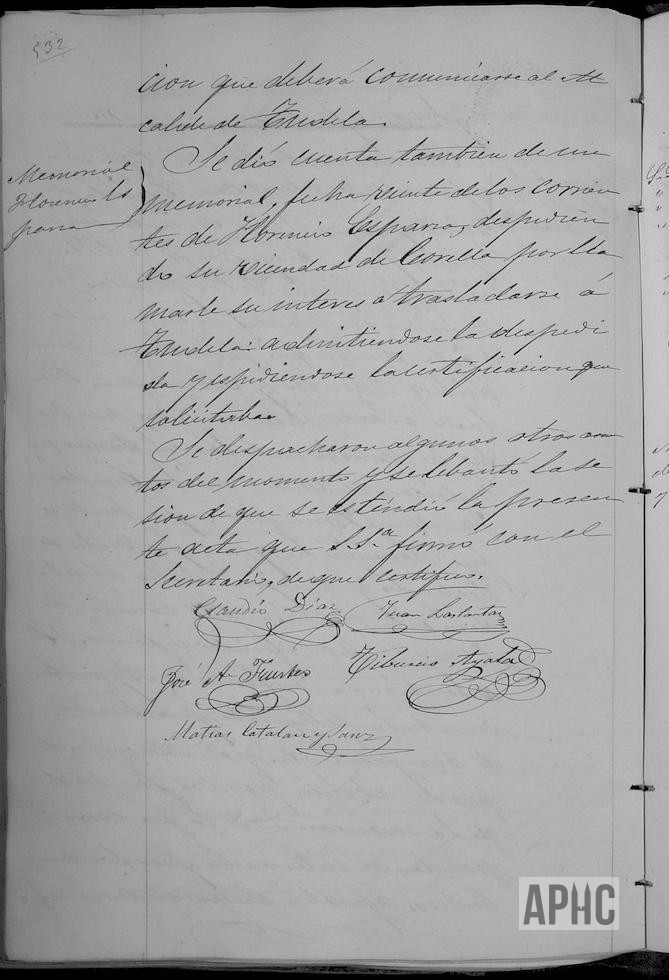 532
cion que deberá comunicarse al Al
calde de Tudela.
Memorial
Florencio Es
parza
Se dió cuenta tambien de un
memorial, fecha veinte de los corrien
tes de Florencio Esparza, despidien
do su vecindad de Corella por lla
marle su interes a trasladarse á
Tudela: admitiendose la despedi
da y espidiendose la certificacion que
solicitaba.
Se despacharon algunos otros asun
tos del momento y se lebantó la se
sion de que se esténdió la presen
te acta que S.Sª. firmó con el
Secretario, de que certifico.
Claudio Diaz
Juan
José A. Fuertes
Tiburcio Ayala
Matias Catalan y Sanz
APHC